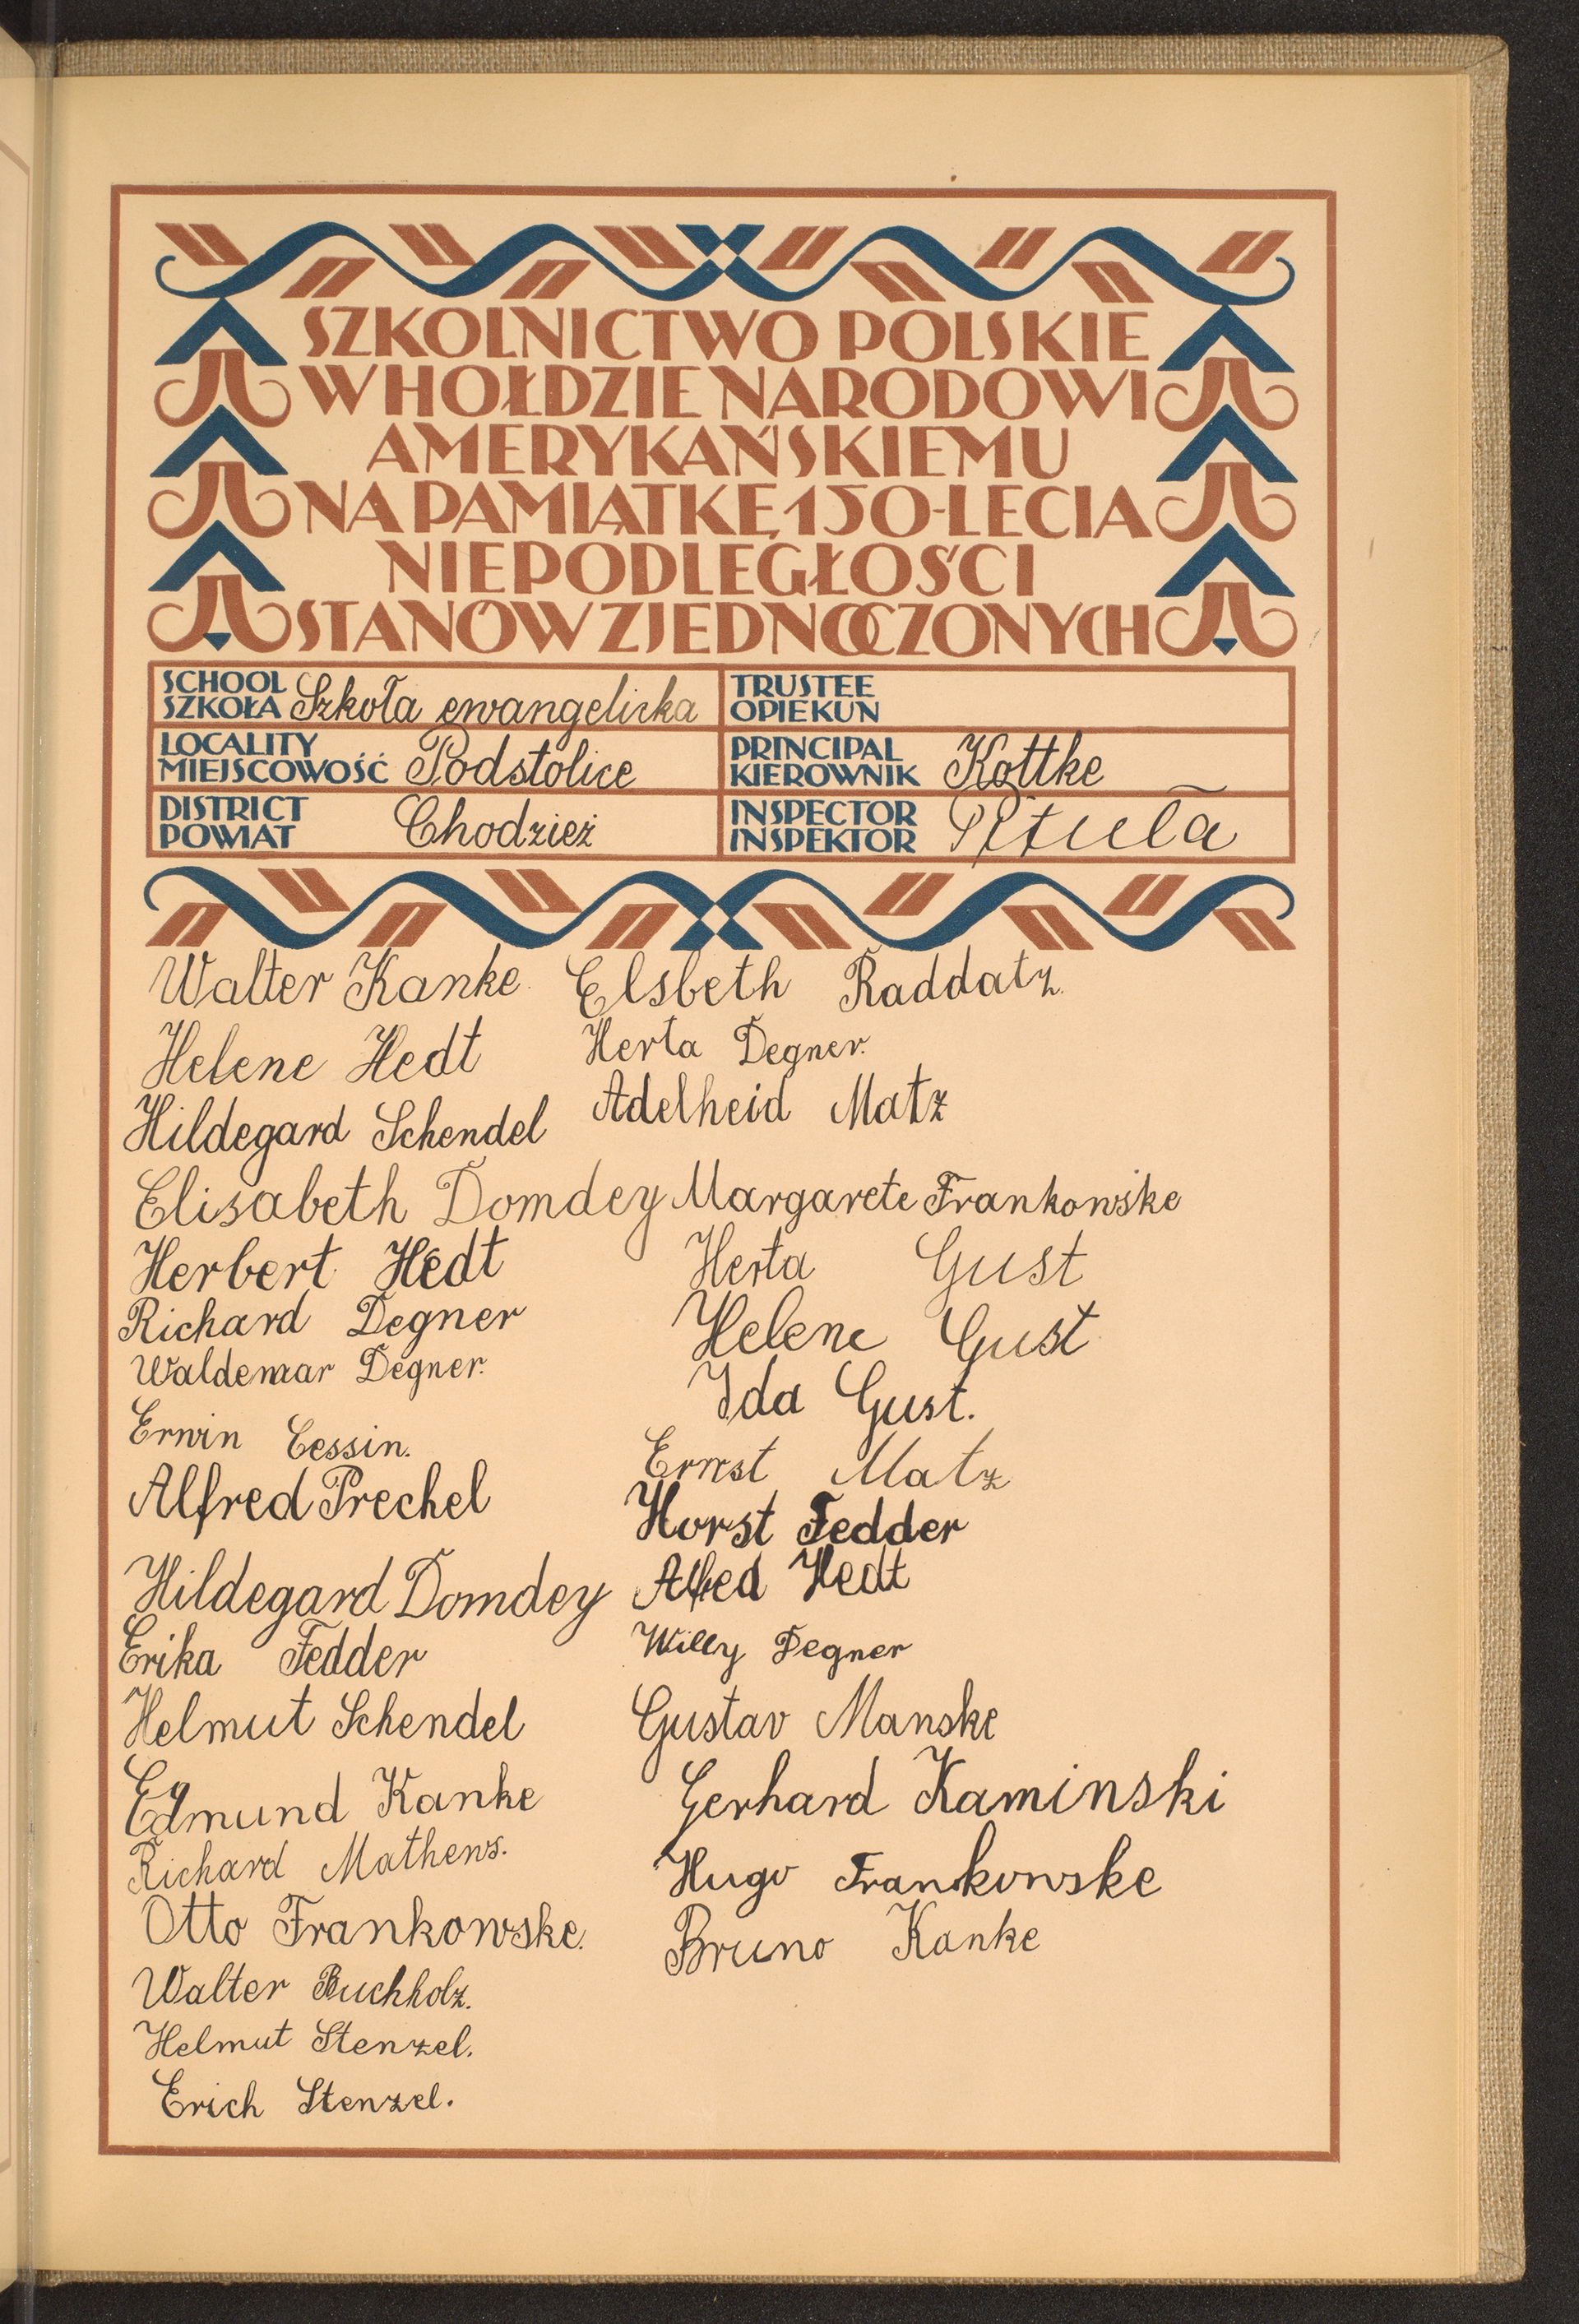 SZKOLNICTWO POLSKIE
W HOŁDZIE NARODOWI
AMERYKAŃSKIEMU
NA PAMIĄTKĘ 150-LECIA
NIEPODLEGŁOŚCI
STANÓW ZJEDNOCZONYCH
SCHOOL
SZKOŁA Szkoła ewangelicka
TRUSTEE
OPIEKUN
LOCALITY
MIEJSCOWOŚĆ Podstolice
PRINCIPAL
KIEROWNIK Kottke
DISTRICT
POWIAT Chodzież
INSPECTOR
INSPEKTOR Pituła
Walter Kanke
Helene Hedt
Hildegard Schendel
Elisabeth Domdey
Herbert Hedt
Richard Degner
Waldemar Degner.
Erwin Cessin.
Alfred Prechel
Hildegard Domdey
Erika Fedder
Helmut Schendel
Edmund Kanke
Richard Mathews.
Otto Frankowske.
Walter Buchholz.
Helmut Stenzel.
Erich Stenzel.
Elsbeth Raddatz.
Herta Degner.
Adelheid Matz
Margarete Frankowske
Herta Gust
Helene Gust
Ida Gust.
Ernst Matz
Horst Fedder
Alfred Hedt
Willy Degner
Gustav Manske
Gerhard Kaminski
Hugo Frankowske
Bruno Kanke